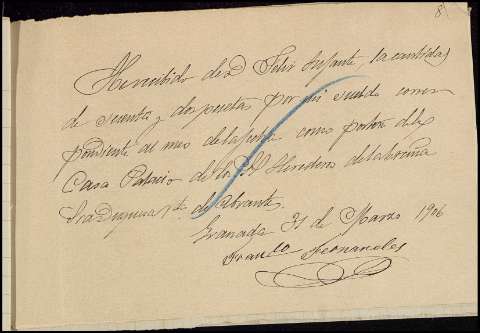 8
He recibido de D Felix Infante, la cantidad
de sesenta y dos pesetas por mi sueldo corres
pondiente al mes de la fecha como portero de la
Casa Palacio de los Herederos de la
Sra Duquesa Vda de Abrantes.
Granada 31 de Marzo 1906
Fernandez